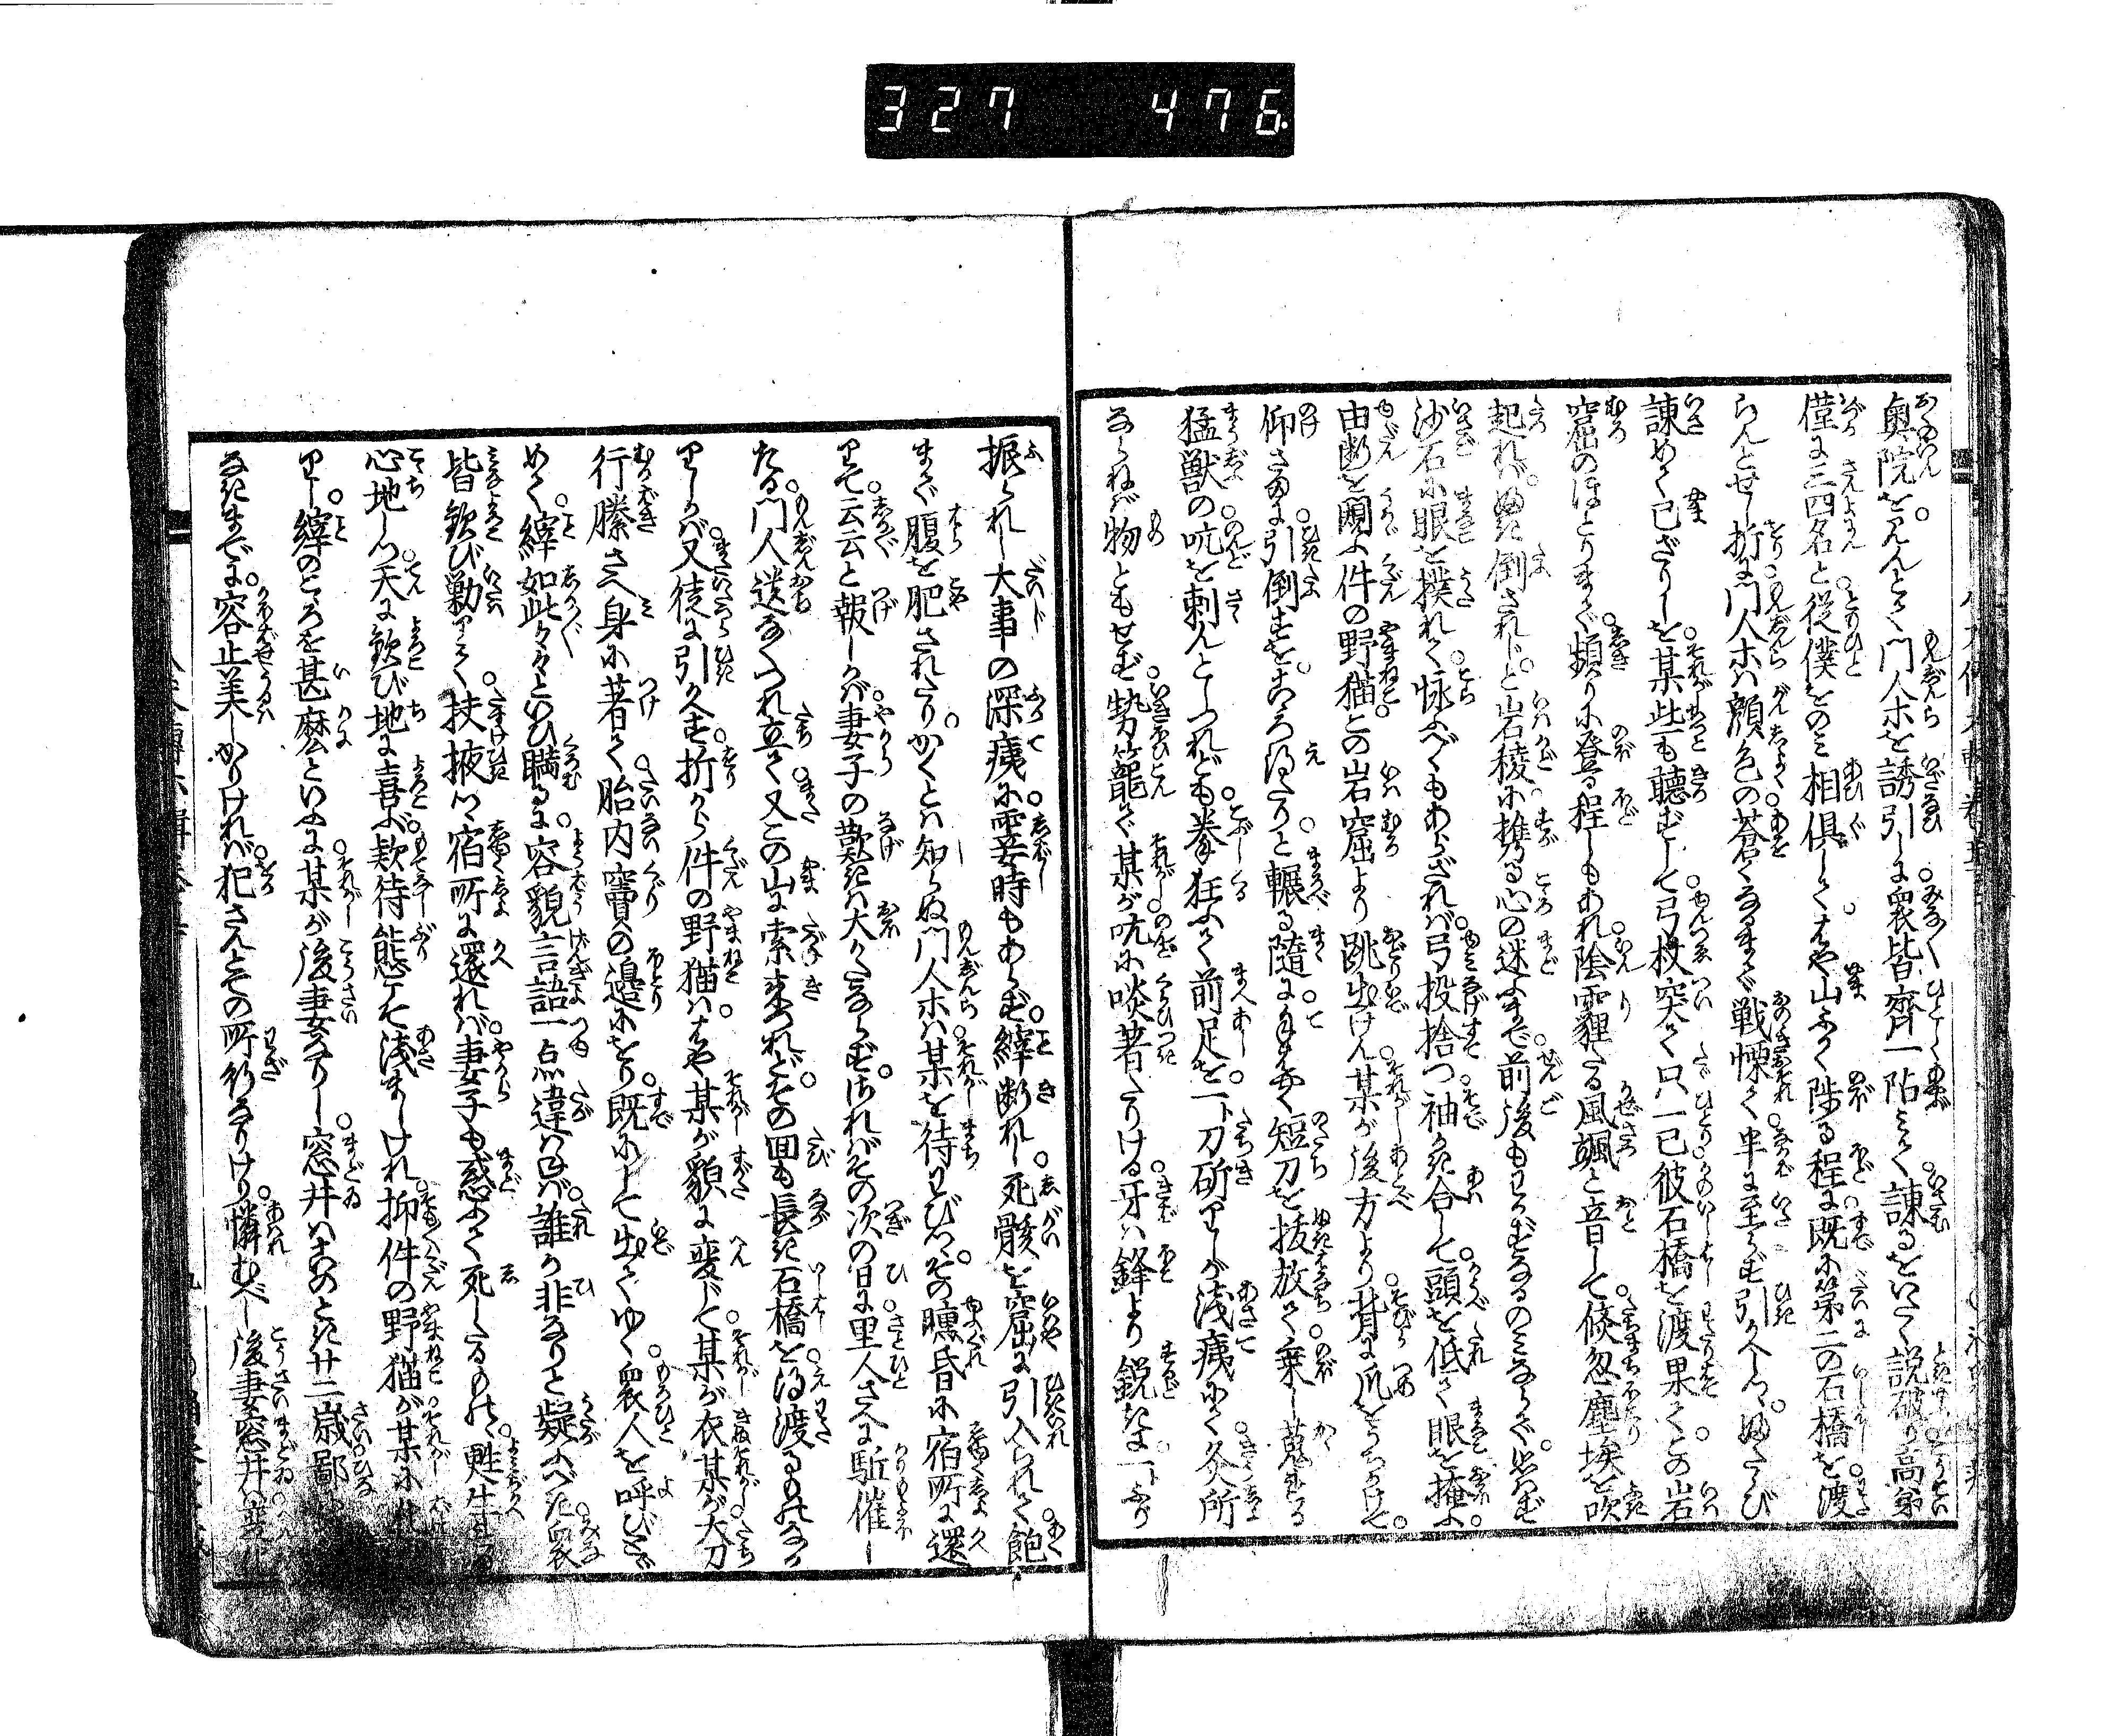 327 476
奥院を見んとて門人ホを誘引しに衆皆齊一阽みて諌るをいたく説破り高弟
僅に三四名と従僕をのみ相倶してはや山ふかく陟る程に既に第二の石橋を渡
らんとせし折に門人ホは顔色の蒼くなるまで戦慄て半に至らず引かへしつふたゝび
諌めて已ざりしを某些も聴ずして弓杖突て只一己彼石橋を渡果てこの岩
窟のほとりまで頻りに登る程しもあれ陰霾たる風颯と音して倏忽塵埃を吹
起ればふき倒されじと岩稜に携る心の迷ふまで前後もわかずなるのみならで思はず
沙石に眼を撲れて怺ふべくもあらざれば弓投捨つ袖かき合して頭を低て眼を掩ふ
由断を闚ふ件の野猫この岩窟より跳出けん某が後方より背に爪をうちかけて
仰さまに引倒すをこゝろ得たりと輾る随に手はやく短刀を抜放て乗し蒐する
猛獣の吭を刺んとしつれども拳狂ふて前足を一ト刀斫りしが浅痍にて灸所
ならねば物ともせず勢籠て某が吭に啖著たりける牙は鋒より鋭きに一トふり
振られし大事の深痍に霎時もあらず縡断れし死骸を窟に引入られて飽
まで腹を肥されたりかくとは知らぬ門人ホは某を待わびつその曛昏に宿所に還
りて云云と報しかば妻子の歎きは大かたならずさればその次の日に里人さへに駈催し
たる門人送なくうち連立て又この山に索来つれどその回も長き石橋を得渡るものなか
りしかば又徒に引久す折から件の野猫ははや某が貌に変じて某が衣某が大刀
行縢さへ身に著て胎内竇の邉にをり既にして出てゆく衆人を呼びとゞ
めて縡如此々々といひ瞞るに容貌言語一点違はねば誰か非なりと疑ふべき衆
皆歓び勦りて扶掖つゝ宿所に還れば妻子も惑ふて死したるものゝ甦生せる
心地しつ天に歓び地に喜ぶ款待態こそ浅ましけれ抑件の野猫が某に
りし縡のところを甚麼といふに某が後妻なりし窓井はこのとき廿二歳鄙
なきまでに容止美しかりければ犯さんとての所行なりけり憐むべし後妻窓井は変化